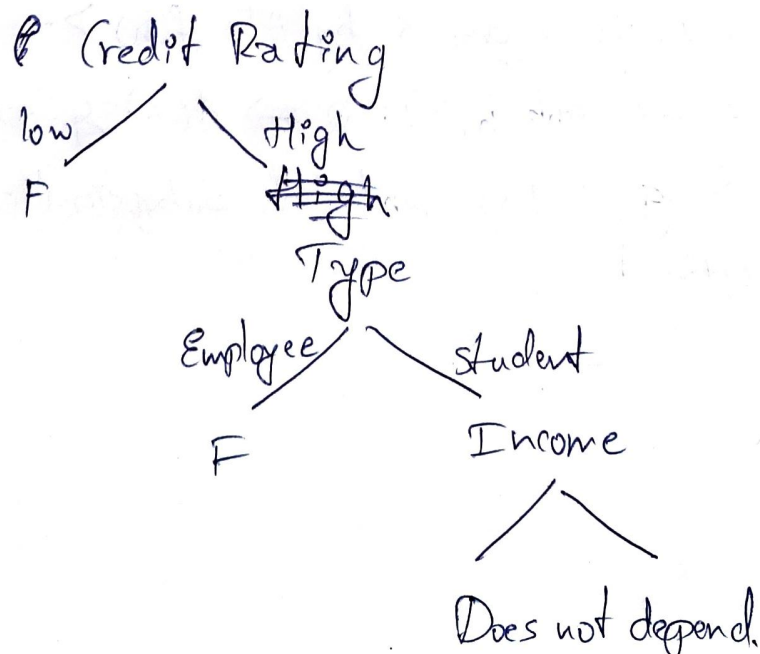 Credit Rating
low High
F
Type
Employee student
F Income
Does not depend.